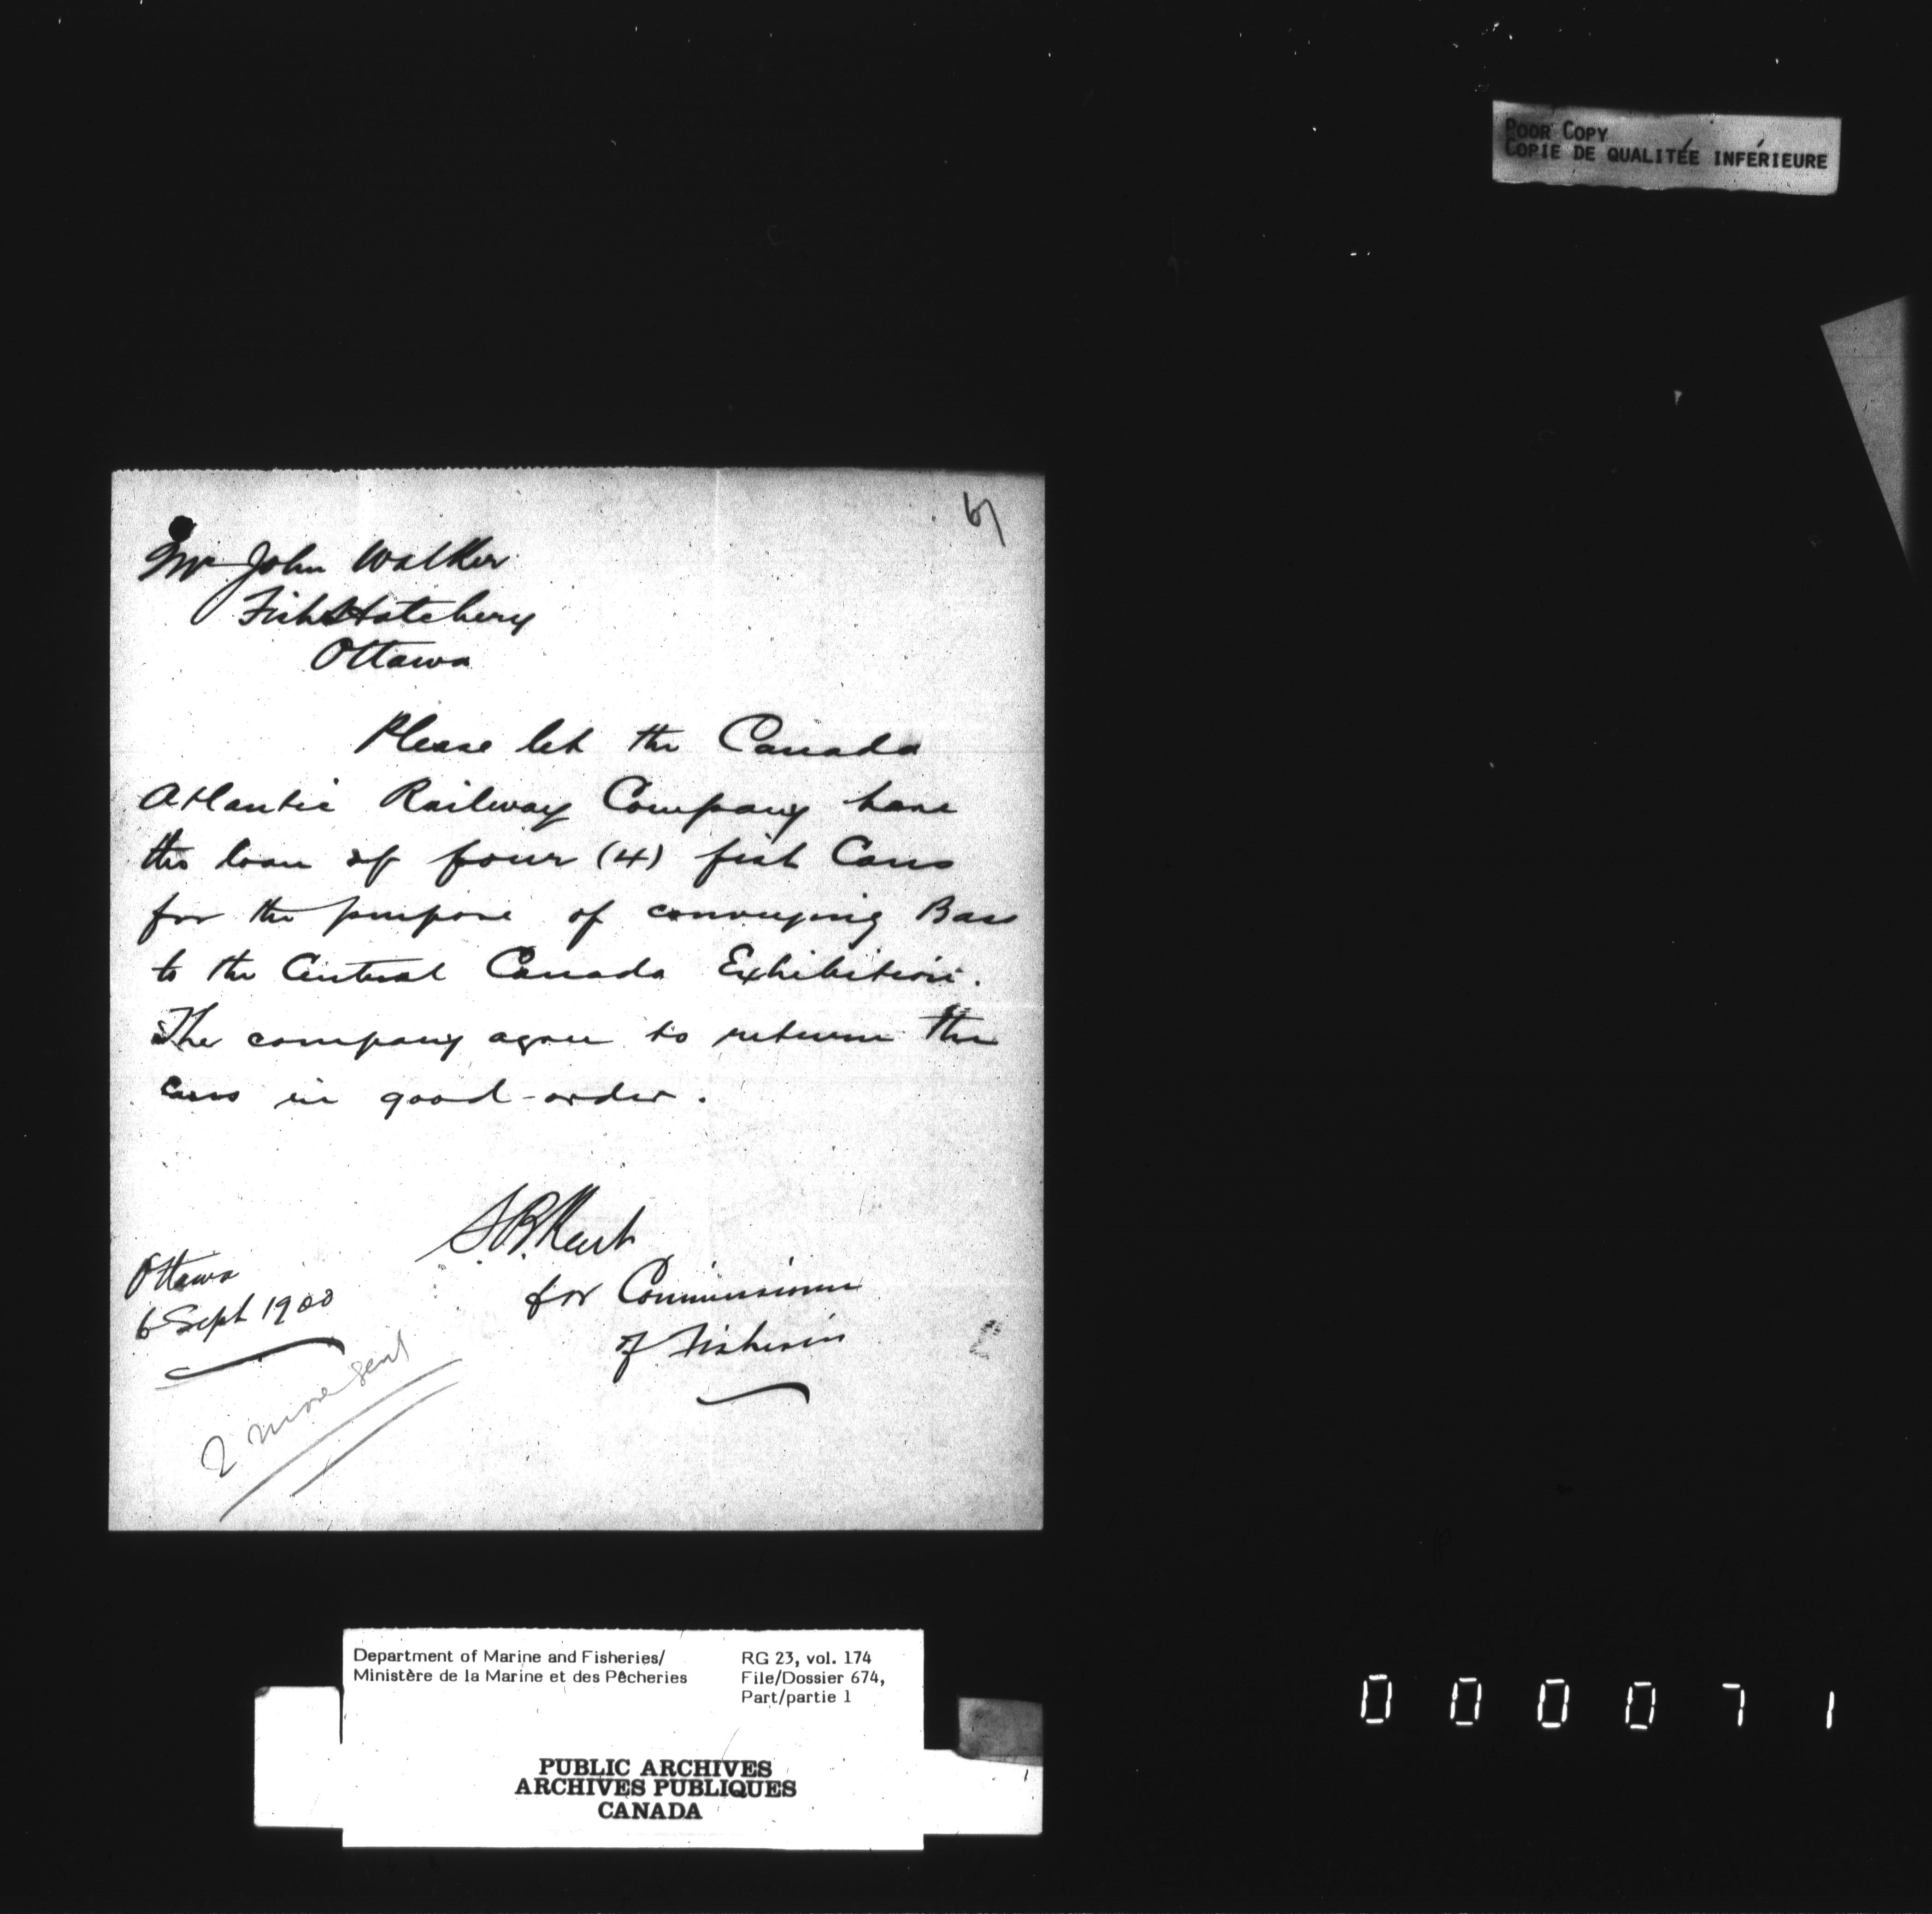 POOR COPY
COPIE DE QUALITÉE INFÉRIEURE
61
Mr John Walker
Fish Hatchery
Ottawa
Please let the Canada
Atlantic Railway Company have
the loan of four (4) fish Cans
for the purpose of conveying Bass
to the Central Canada Exhibition.
The company agree to return the
cans in good order.
for Commissioner
of Fisheries
Ottawa
6 Sept 1900
2 more sent
Department of Marine and Fisheries/
Ministère de la Marine et des Pêcheries
RG 23, vol. 174
File/Dossier 674,
Part/partie 1
PUBLIC ARCHIVES
ARCHIVES PUBLIQUES
CANADA
000071